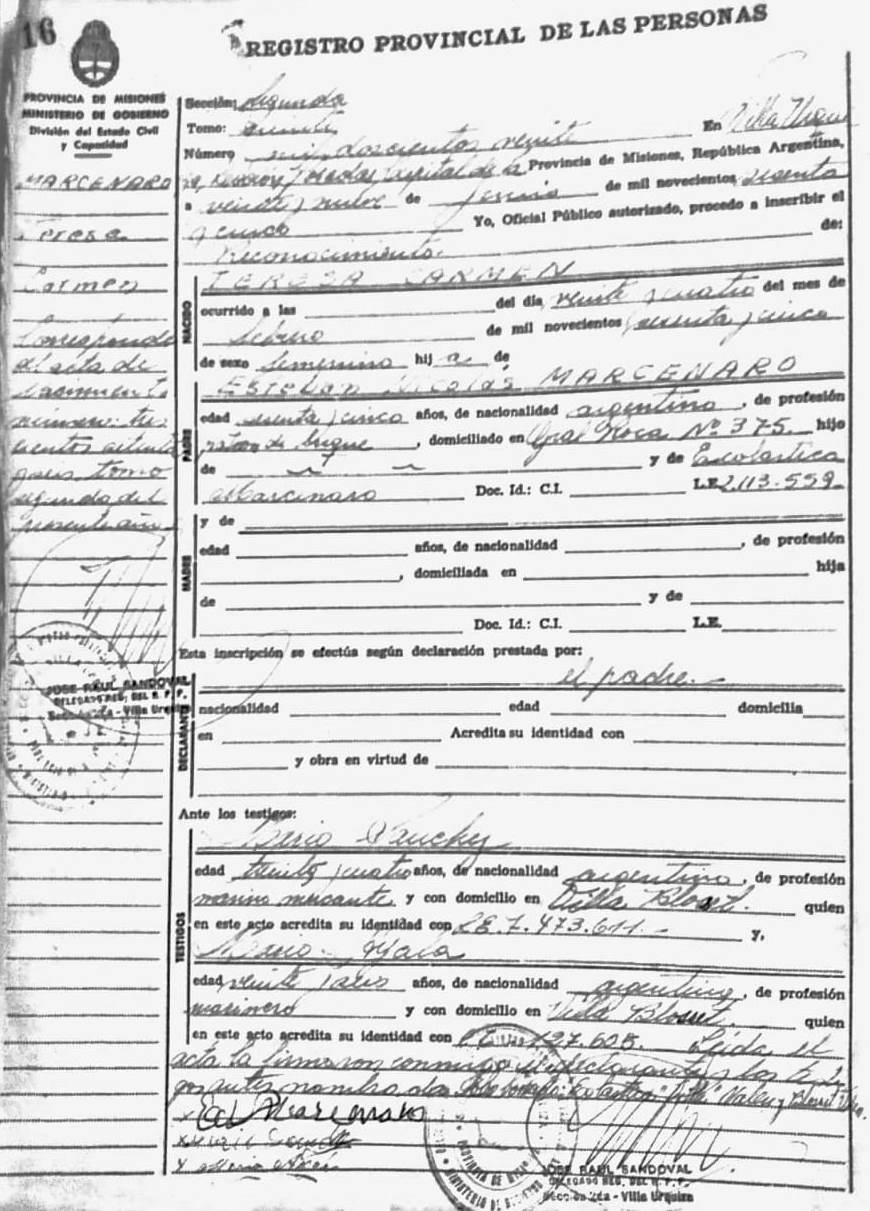 16
REGISTRO PROVINCIAL DE LAS PERSONAS
PROVINCIA DE MISIONES
MINISTERIO DE GOBIERNO
División del Estado Civil
y Capacidad
MARCENARO
Teresa
Carmen
Corresponde
al acta de
nacimiento
número: tres
segundo del
presente año
JOSE RAUL SANDOVAL
DELEGADO REG. DEL R. P. P.
Sección 2da - Villa Urquiza
Sección: Segunda
Tomo: quinto En Villa Urqui
Número mil doscientos veinte
za, Posadas, Capital de la Provincia de Misiones, República Argentina,
a veinte y nueve de junio de mil novecientos sesenta
y cinco Yo, Oficial Público autorizado, procedo a inscribir el
de:
Reconocimiento.
NACIDO
TERESA CARMEN
ocurrido a las del día veinte y cuatro del mes de
febrero de mil novecientos sesenta y cinco
de sexo femenino hij a de
PADRE
Esteban Nicolás MARCENARO
edad sesenta y cinco años, de nacionalidad argentino, de profesión
patron de buque, domiciliado en Gral Roca Nº 375. hijo
de y de Escolastica
Marcenaro Doc. Id.: C.I. L.E. 2.113.559.
MADRE
y de
edad años, de nacionalidad , de profesión
, domiciliada en hija
de y de
Doc. Id.: C.I. L.E.
Esta inscripción se efectúa según declaración prestada por:
DECLARANTE
el padre.
nacionalidad edad domicilia
en Acredita su identidad con
y obra en virtud de
Ante los testigos:
TESTIGOS
edad treinta y cuatro años, de nacionalidad argentino, de profesión
marino mercante, y con domicilio en Villa Blosset. quien
en este acto acredita su identidad con L.E. 7.473.611. y,
Mario Ayala
edad veinte y seis años, de nacionalidad argentino, de profesión
marinero y con domicilio en Villa Blosset. quien
en este acto acredita su identidad con Leida el
acta la firmaron conmigo el declarante y los testi
gos antes nombrados
E N Marcenaro
JOSE RAUL SANDOVAL
DELEGADO REG. DEL R. P. P.
Sección 2da - Villa Urquiza